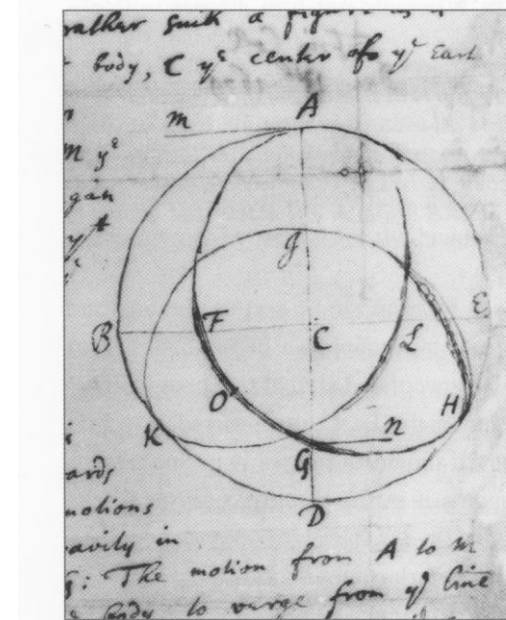 rather such a figure is
body, C yᵉ center of yᵉ Eart
m
A
M yᵉ
gan
J
B
F
C
E
L
O
H
K
n
G
D
ards
motions
avity in
: The motion from A to m
body to verge from yᵉ line